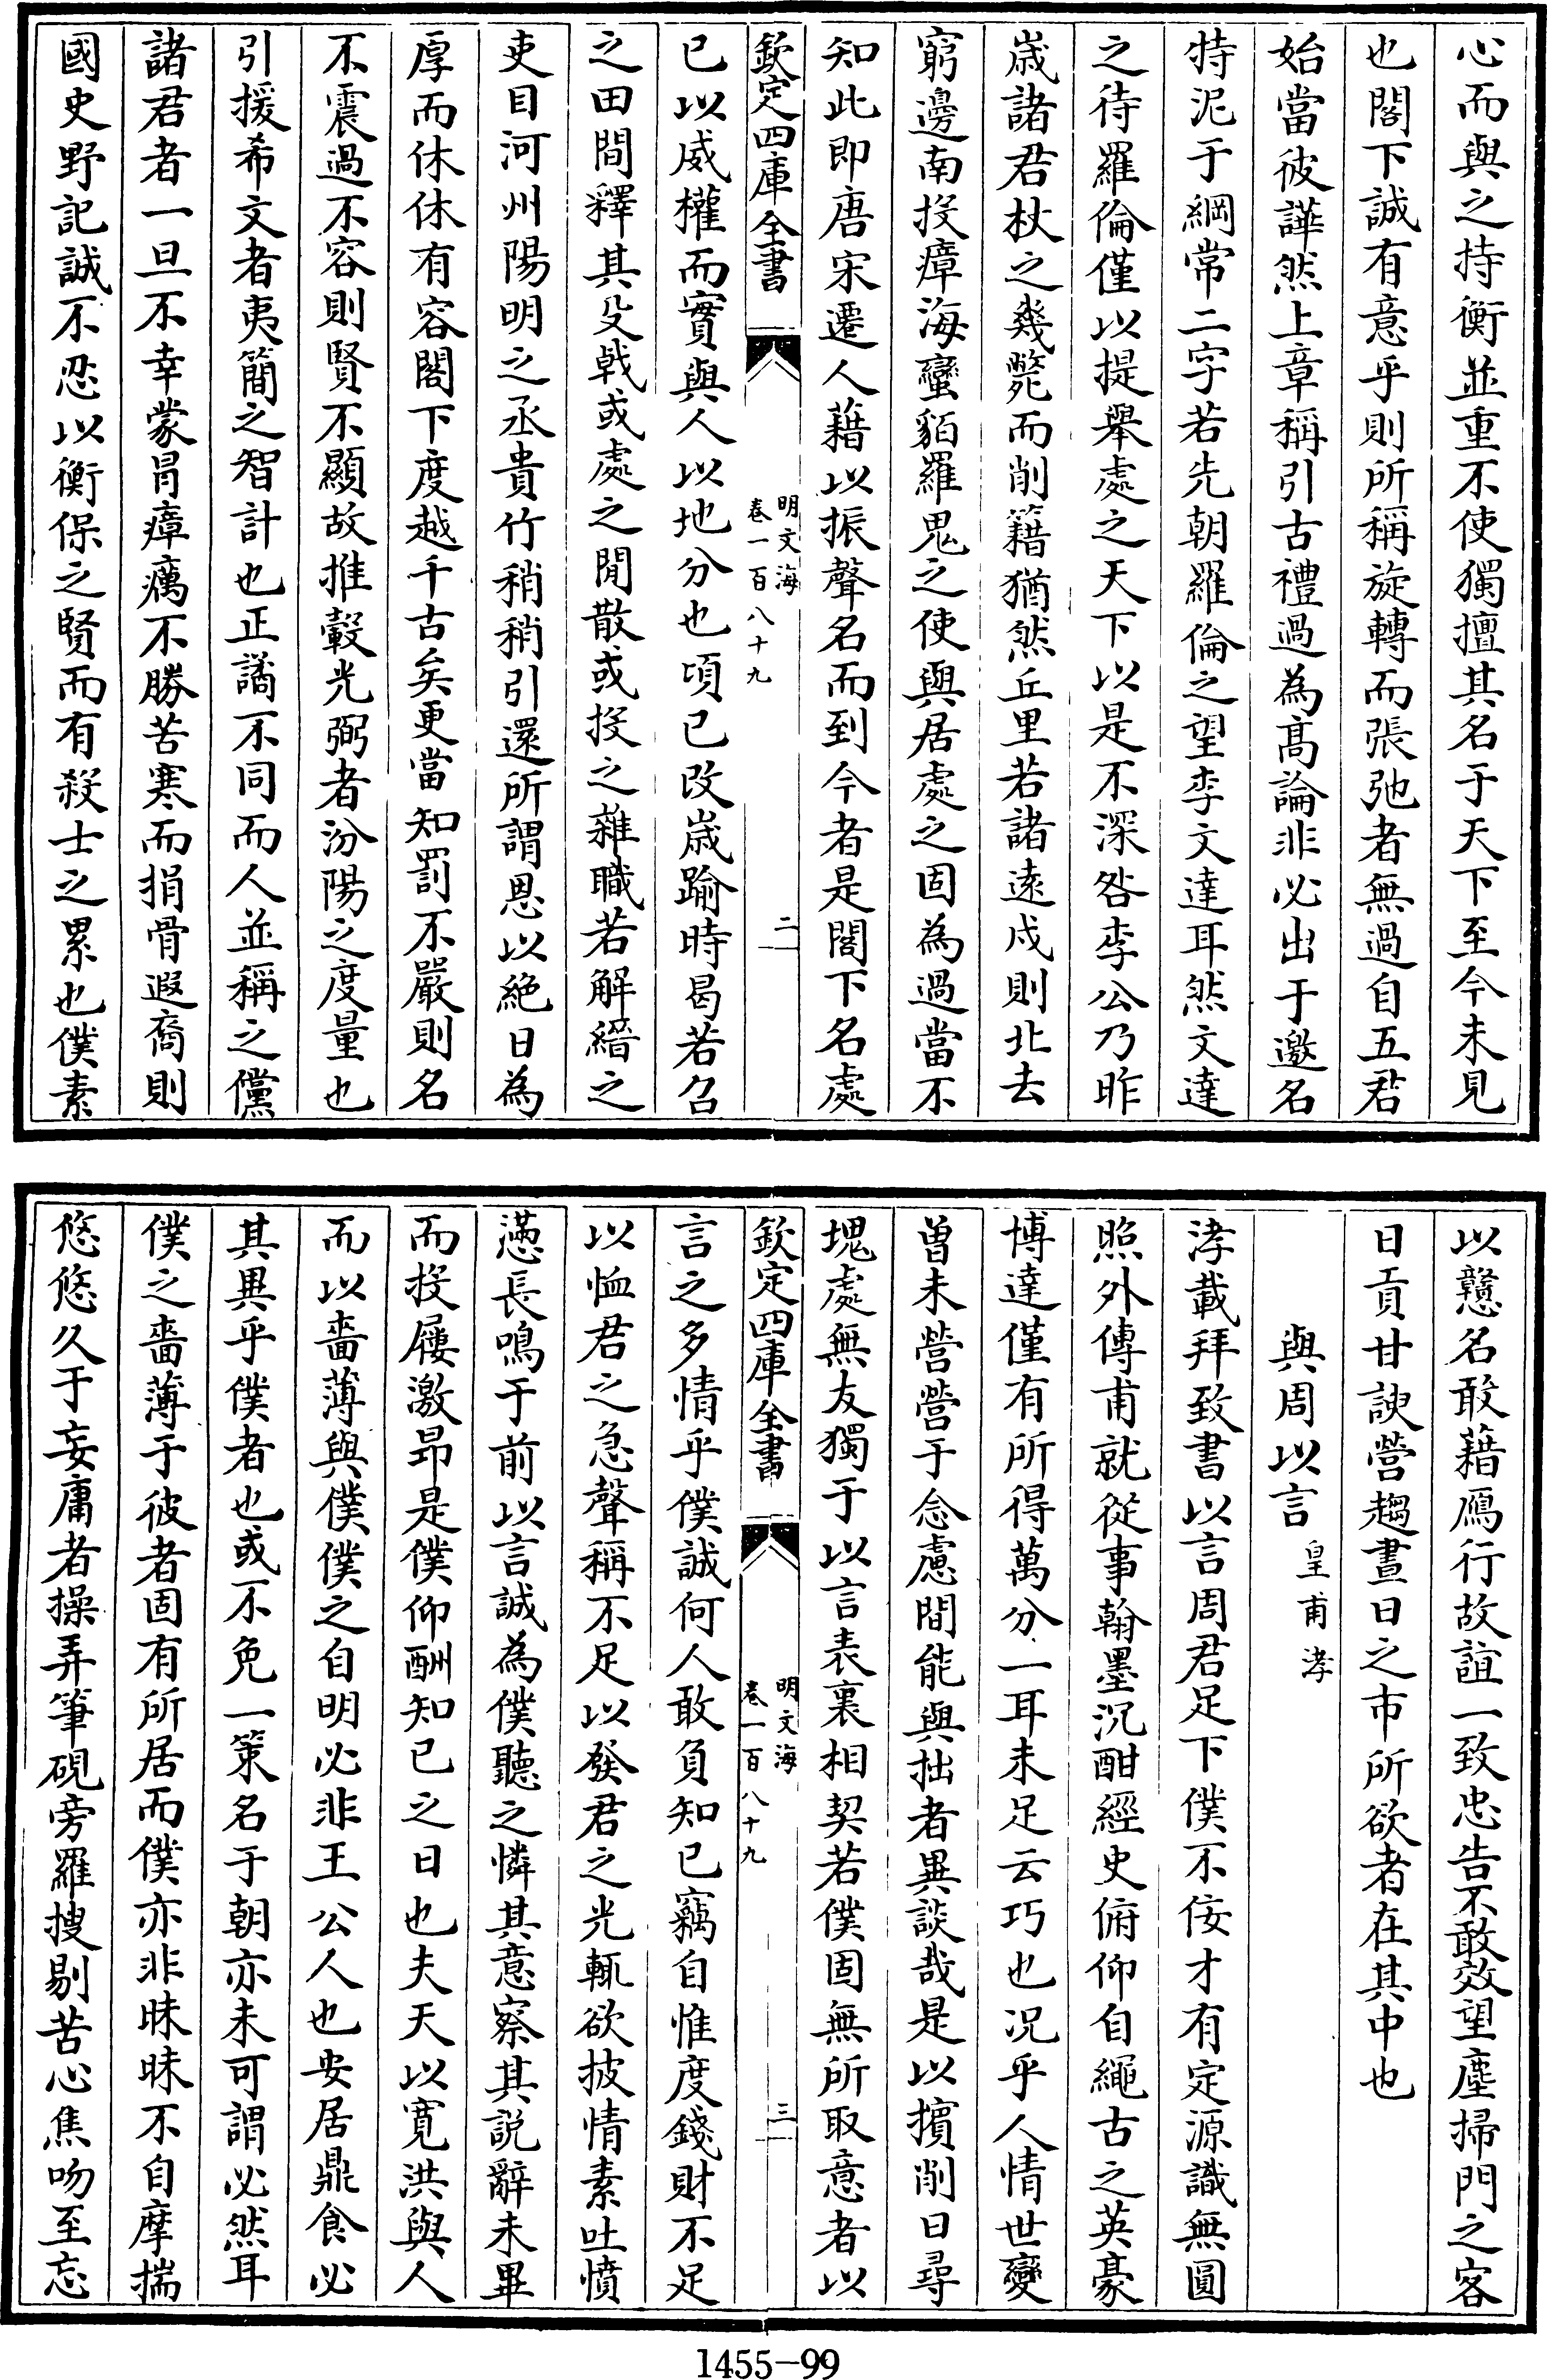 心而與之持衡並重不使獨擅其名于天下至今未見
也閣下誠有意乎則所稱旋轉而張弛者無過自五君
始當彼譁然上章稱引古禮過為髙論非必出于邀名
特泥于綱常二字若先朝羅倫之望李文達耳然文達
之待羅倫僅以提舉處之天下以是不深咎李公乃昨
嵗諸君杖之幾斃而削籍猶然丘里若諸逺戍則北去
窮邊南投瘴海蠻貊羅鬼之使與居處之固為過當不
知此即唐宋遷人藉以振聲名而到今者是閣下名處
欽定四庫全書
明文海
卷一百八十九
二
已以威權而實與人以地分也頃已改嵗踰時曷若召
之田間釋其殳㦸或處之閒散或投之雜職若解縉之
吏目河州陽明之丞貴竹稍稍引還所謂恩以絶日為
厚而休休有容閣下度越千古矣更當知罰不嚴則名
不震過不容則賢不顯故推轂光弼者汾陽之度量也
引援希文者夷簡之智計也正譎不同而人並稱之儻
諸君者一旦不幸蒙冐瘴癘不勝苦寒而捐骨遐裔則
國史野記誠不忍以衡保之賢而有殺士之累也僕素
以戇名敢藉鴈行故誼一致忠告不敢效望塵掃門之客
日貢甘諛營趨晝日之市所欲者在其中也
與周以言 皇甫涍
涍載拜致書以言周君足下僕不佞才有定源識無圓
照外傅甫就從事翰墨沉酣經史俯仰自繩古之英豪
博達僅有所得萬分一耳未足云巧也况乎人情世變
曽未營營于念慮間能與拙者異談哉是以擯削日尋
塊處無友獨于以言表裏相契若僕固無所取意者以
欽定四庫全書
明文海
卷一百八十九
三
言之多情乎僕誠何人敢負知已竊自惟度錢財不足
以恤君之急聲稱不足以發君之光輒欲披情素吐憤
懣長鳴于前以言誠為僕聽之憐其意察其説辭未畢
而投屨激昻是僕仰酬知已之日也夫天以寛洪與人
而以嗇薄與僕僕之自明必非王公人也安居鼎食必
其異乎僕者也或不免一䇿名于朝亦未可謂必然耳
僕之嗇薄于彼者固有所居而僕亦非昧昧不自摩揣
悠悠久于妄庸者操弄筆硯旁羅搜剔苦心焦吻至忘
1455-99